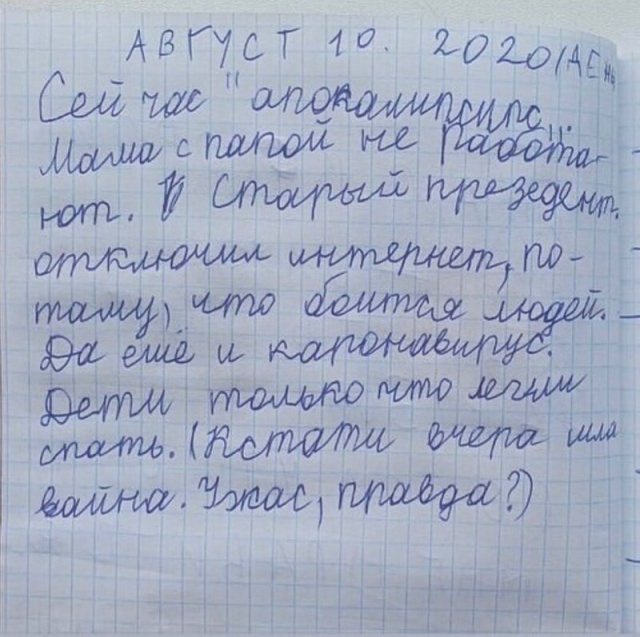 АВГУСТ 10. 2020/ДЕНЬ
Сейчас "апокалипсипс".
Мама с папой не работа-
ют. Старый презедент.
отключил интернет, по-
таму, что боится людей.
Да ешё и каронавирус.
Дети только что легли
спать. (Кстати вчера шла
вайна. Ужас, правда?)